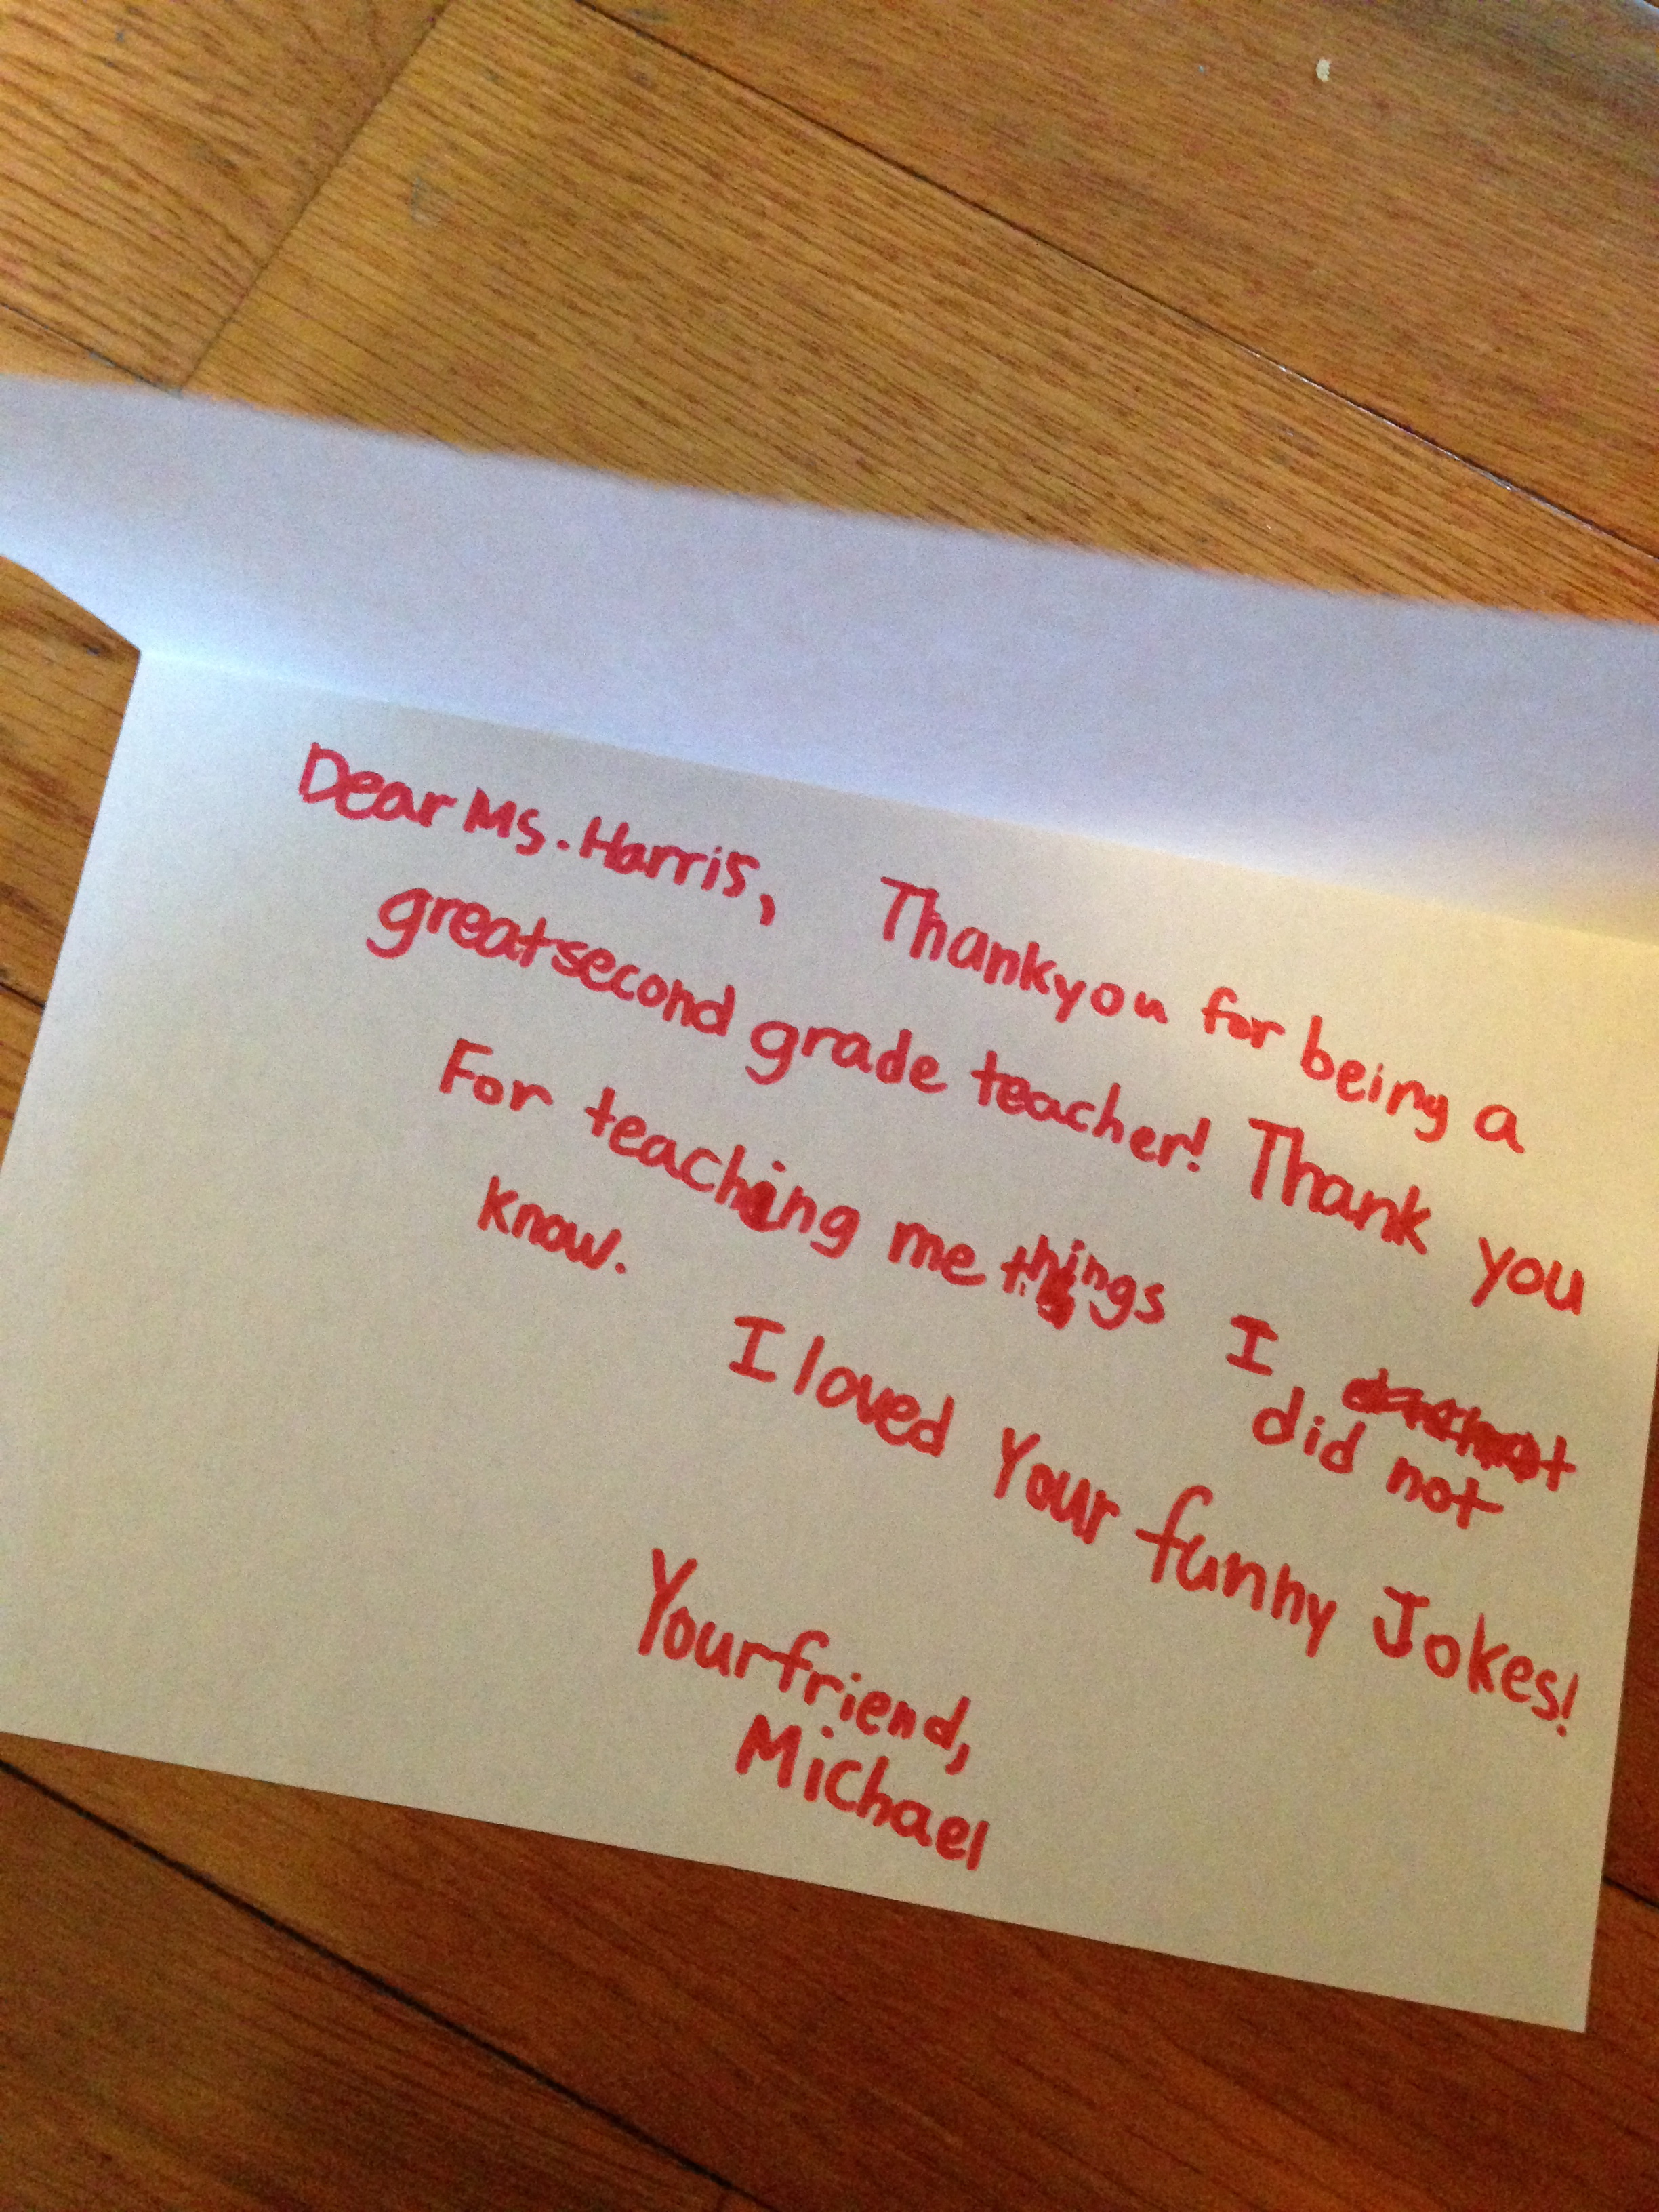 Dear Ms. Harris, Thankyou for being a
greatsecond grade teacher! Thank you
For teaching me things I did not
know. I loved Your funny Jokes!
Yourfriend,
Michael